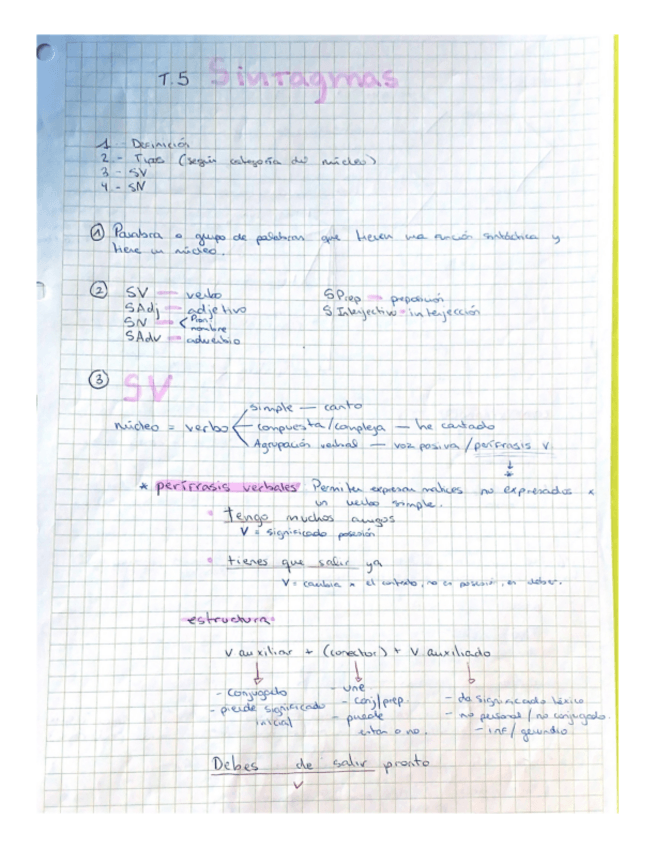 T.5 Sintagmas
1 - Definición
2 - Tipos (según categoría del núcleo)
3 - SV
4 - SN
① Palabra o grupo de palabras que tienen una función sintáctica y
tiene un núcleo.
② SV — verbo
SAdj — adjetivo
SN — < Pron / nombre
SAdv — adverbio
SPrep — preposición
S Interjectivo - interjección
③ SV
núcleo = verbo
simple — canto
compuesta/compleja — he cantado
Agrupación verbal — voz pasiva / perífrasis v.
* perífrasis verbales Permiten expresar matices no expresados x
un verbo simple.
• tengo muchos amigos
V = significado posesión
• tienes que salir ya
V = cambia x el contexto, no es posesión, es deber.
estructura
V auxiliar + (conector) + V auxiliado
- conjugado
- pierde significado
inicial
- une
- conj/prep.
- puede
estar o no.
- da significado léxico
- no personal / no conjugado
- inf / gerundio
Debes de salir pronto
V